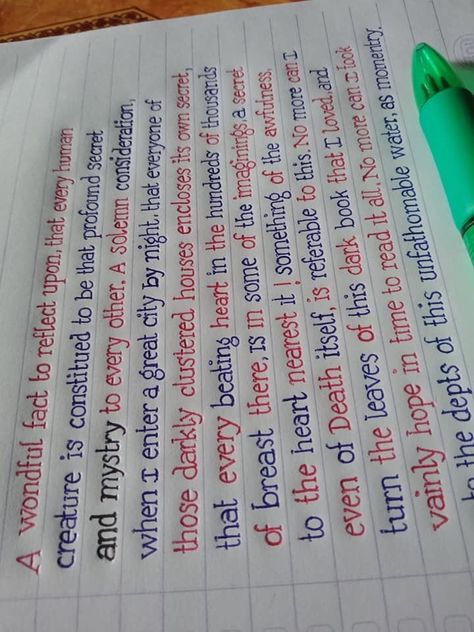 A wondful fact to reflect upon, that every human
creature is constitued to be that profound secret
and mystry to every other. A solemn consideration,
when I enter a great city by night. that everyone of
those darkly clustered houses encloses its own secret,
that every beating heart in the hundreds of thousands
of breast there, is in some of the imaginings a secret
to the heart nearest it! something of the awfulness,
even of Death itself, is referable to this. No more can I
turn the leaves of this dark book that I loved, and
vainly hope in time to read it all. No more can I look
to the depts of this unfathomable water, as momentry,